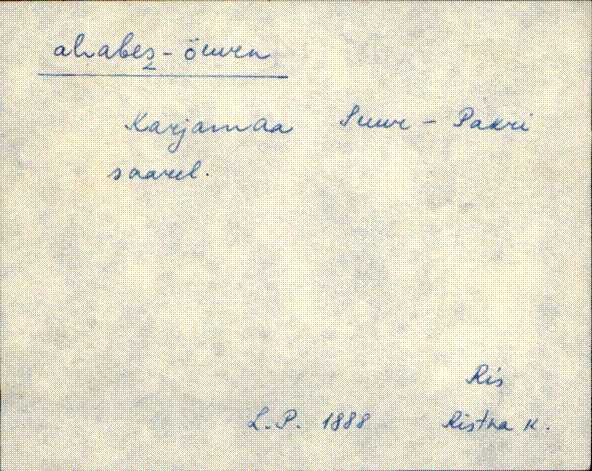 ahabes-öuven
Karjamaa Suur-Pakri
saarel.
Ris
L.P. 1888 Ristna K.